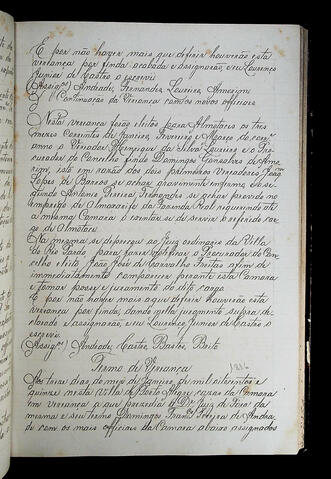 E por não haver mais que deferir houverão esta
veriança por finda acabada e assignarão, e eu Lourenço
Junior de Castro o escrevi.
(Assigs.) Andrade, Fernandes, Loureiro, Amorim
Continuação da Veriança com os novos officiaes
Nesta veriança forão eleitos para Almotaceis os tres
mezes correntes de Janeiro, Fevereiro e Março do corr.e
anno o Vereador Henrique da Silva Loureiro e o Pro-
curador do Concelho findo Domingos Gonsalves de Amo-
rim, isto em razão dos dois primeiros vereadores João
Lopes de Barcos se achar gravemente enfermo, e o se-
gundo Antonio Pereira Fernandes se achar provido no
emprego de Almoxarife da Fazenda Real requerendo até
a mesma Camara o izentar-se de servir o referido car-
go de Almotacé.
Na mesma se deprecou ao Juiz ordinario da Villa
do Rio Pardo para fazer notificar o Procurador do Con-
celho eleito João José de Carvalho Freitas afim de
immediatamente comparecer perante esta Camara
e tomar posse e juramento do dito cargo.
E por não haver mais a que deferir houverão esta
veriança por finda, dando nella juramento supra de-
clarado e assignarão, e eu Lourenço Junior de Castro o
escrevi.
(Assigs.) Andrade, Castro, Bastos, Brito
Termo de Veriança 1816
Aos treze dias do mez de Janeiro, de mil oitocentos e
quinze nesta Villa de Porto Alegre cazas da Camara
em veriança a que prezedio o Dr. Juiz de Fora da
mesma e seu termo Domingos Franco Pereira de Andra-
de com os mais officiaes da Camara abaixo assignados